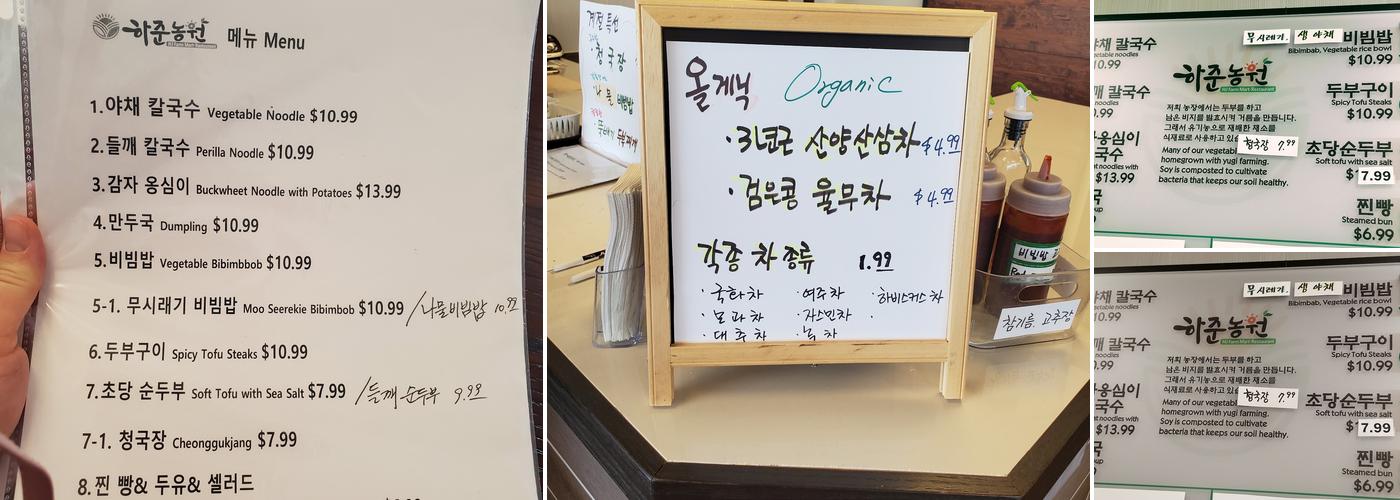 하준농원 메뉴 Menu
HJ Farm Mart Restaurant
1.야채 칼국수 Vegetable Noodle $10.99
2.들깨 칼국수 Perilla Noodle $10.99
3.감자 옹심이 Buckwheet Noodle with Potatoes $13.99
4.만두국 Dumpling $10.99
5.비빔밥 Vegetable Bibimbbob $10.99
5-1. 무시래기 비빔밥 Moo Seerekie Bibimbob $10.99 /나물비빔밥 10.99
6.두부구이 Spicy Tofu Steaks $10.99
7.초당 순두부 Soft Tofu with Sea Salt $7.99 /들깨 순두부 9.99
7-1. 청국장 Cheonggukjang $7.99
8.찐 빵& 두유& 셀러드
계절 특선
·청국장
나물 비빔밥
올게닉 Organic
·3년근 산양산삼차 $4.99
·검은콩 율무차 $4.99
각종 차 종류 1.99
·국화차 ·여주차 ·하비스커스차
·모과차 ·자스민차 ·
·대추차 ·녹차
비빔밥 고
참기름, 고추장
야채 칼국수
10.99
$13.99
무시래기. 생야채 비빔밥
Bibimbab, Vegetable rice bowl
$10.99
하준농원
HJ Farm Mart Restaurant
두부구이
Spicy Tofu Steaks
$10.99
저희 농장에서는 두부를 하고
남은 비지를 발효시켜 거름을 만듭니다.
그래서 유기농으로 재배한 재소를
식재료로 사용하고 있
청국장 7.99
초당순두부
Soft tofu with sea salt
7.99
Many of our vegetab
homegrown with yugi farming.
Soy is composted to cultivate
bacteria that keeps our soil healthy.
찐빵
Steamed bun
$6.99
칼국수
10.99
$13.99
무시래기. 생야채 비빔밥
Bibimbab, Vegetable rice bowl
$10.99
하준농원
HJ Farm Mart Restaurant
두부구이
Spicy Tofu Steaks
$10.99
저희 농장에서는 두부를 하고
남은 비지를 발효시켜 거름을 만듭니다.
그래서 유기농으로 재배한 재소를
식재료로 사용하고 있
청국장 7.99
초당순두부
Soft tofu with sea salt
7.99
Many of our vegetab
homegrown with yugi farming.
Soy is composted to cultivate
bacteria that keeps our soil healthy.
찐빵
Steamed bun
$6.99